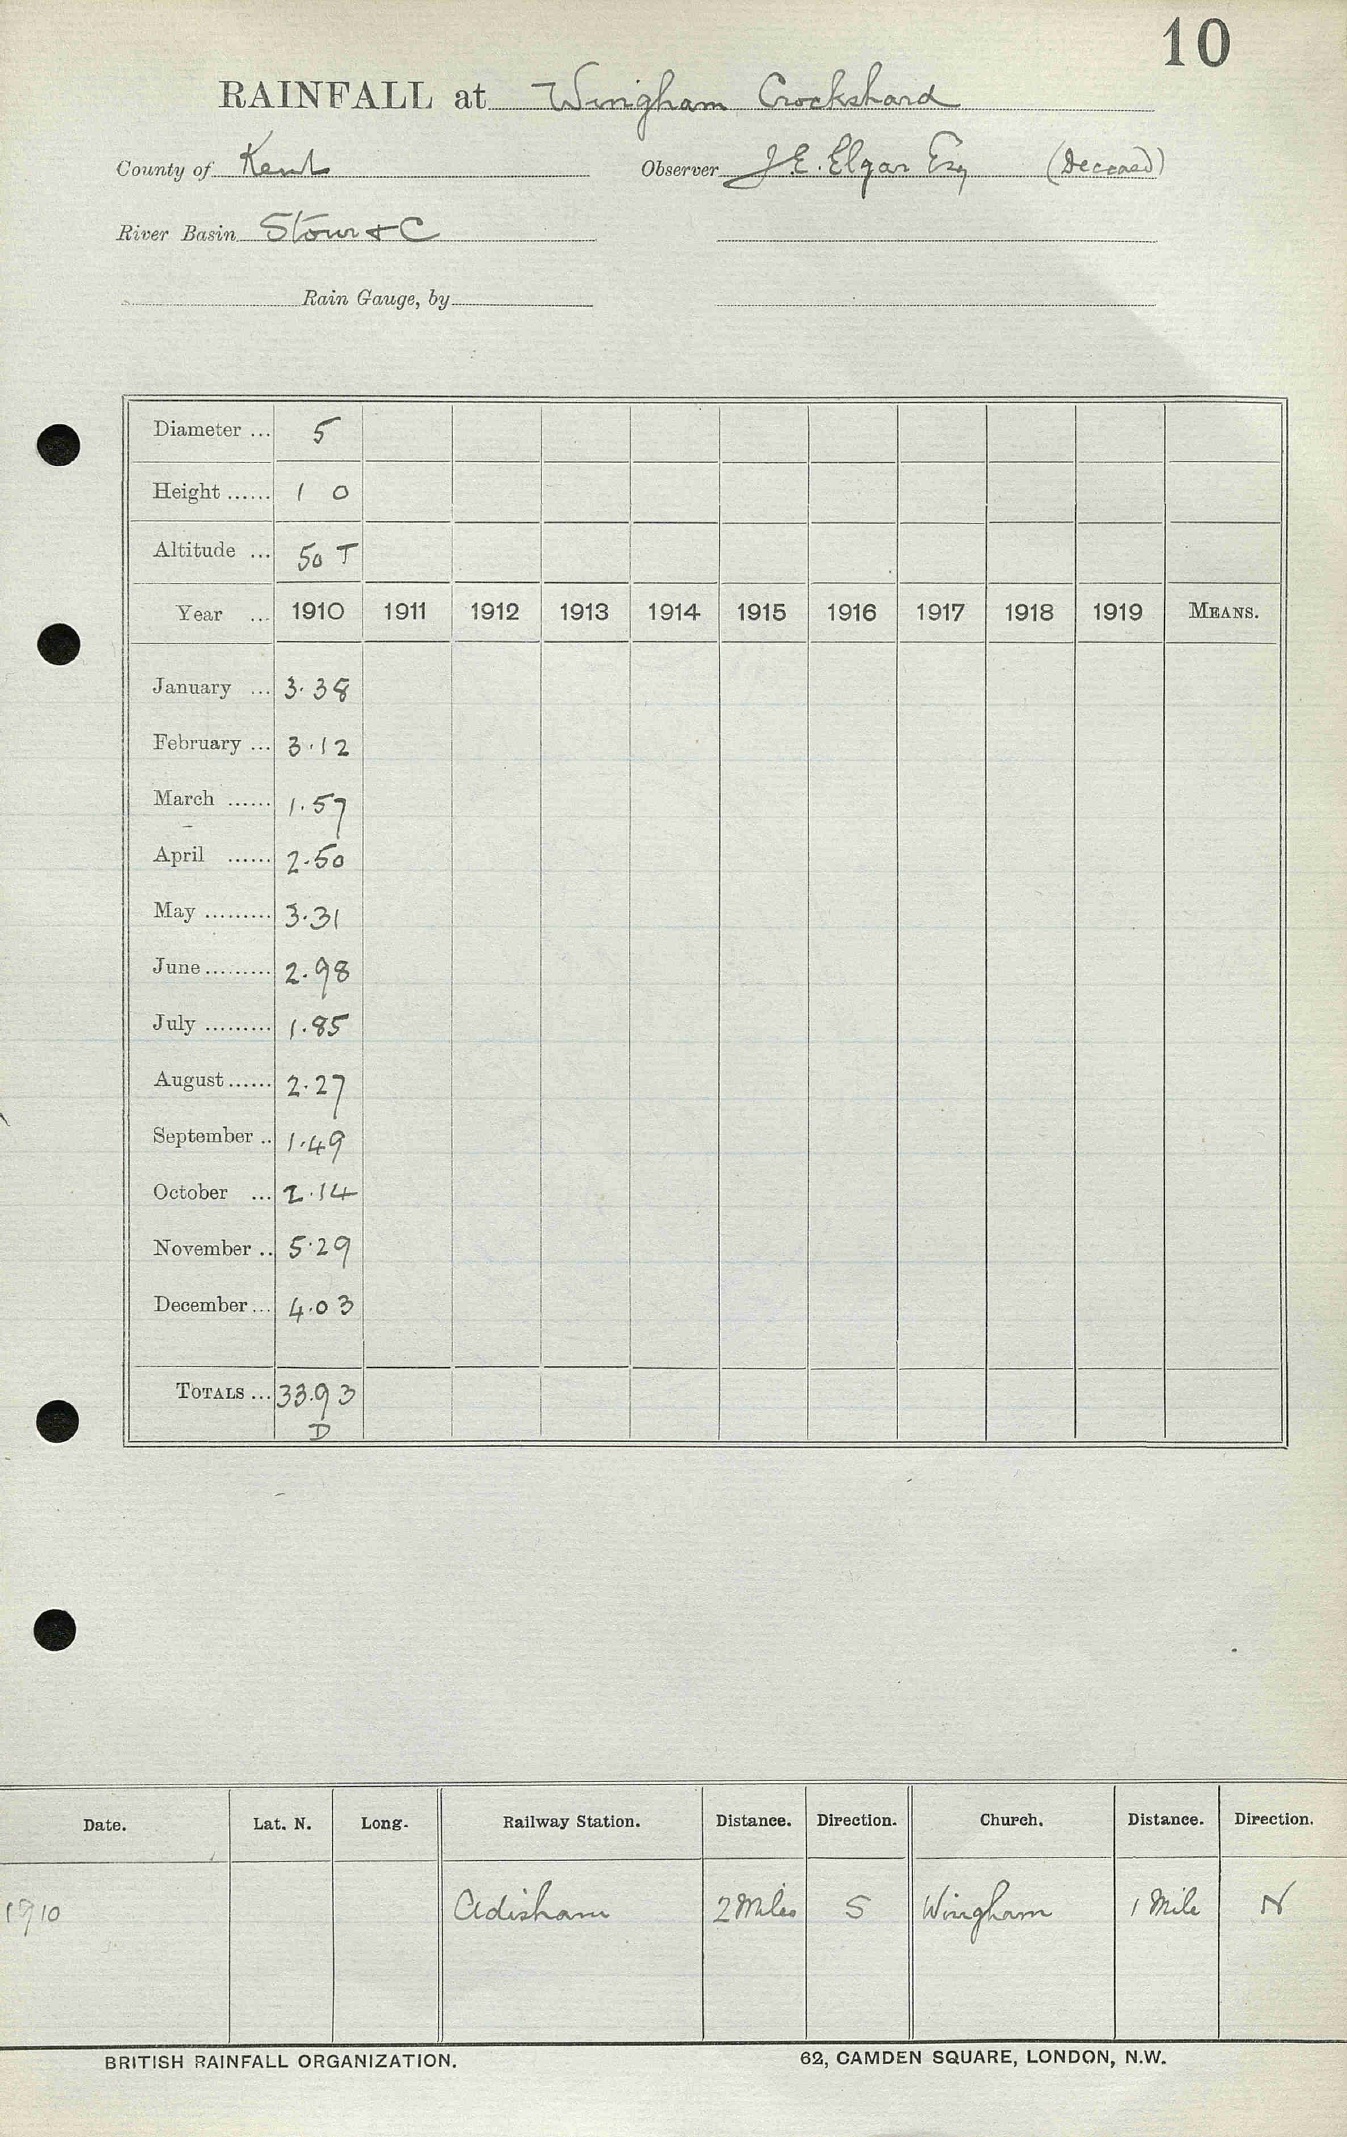 10
RAINFALL at Wingham Crockshard
County of Kent Observer J.E. Elgar Esq (Deceased)
River Basin Stour & C
Rain Gauge, by
Diameter ... 5
Height ...... 1 0
Altitude ... 50 T
Year ... 1910 1911 1912 1913 1914 1915 1916 1917 1918 1919 MEANS.
January ... 3.38
February ... 3.12
March ...... 1.57
April ...... 2.50
May ......... 3.31
June ......... 2.98
July ......... 1.85
August ...... 2.27
September .. 1.49
October ... 2.14
November .. 5.29
December ... 4.03
TOTALS ... 33.93
D
Date. Lat. N. Long. Railway Station. Distance. Direction. Church. Distance. Direction.
1910 Adisham 2 Miles S Wingham 1 Mile N
BRITISH RAINFALL ORGANIZATION. 62, CAMDEN SQUARE, LONDON, N.W.